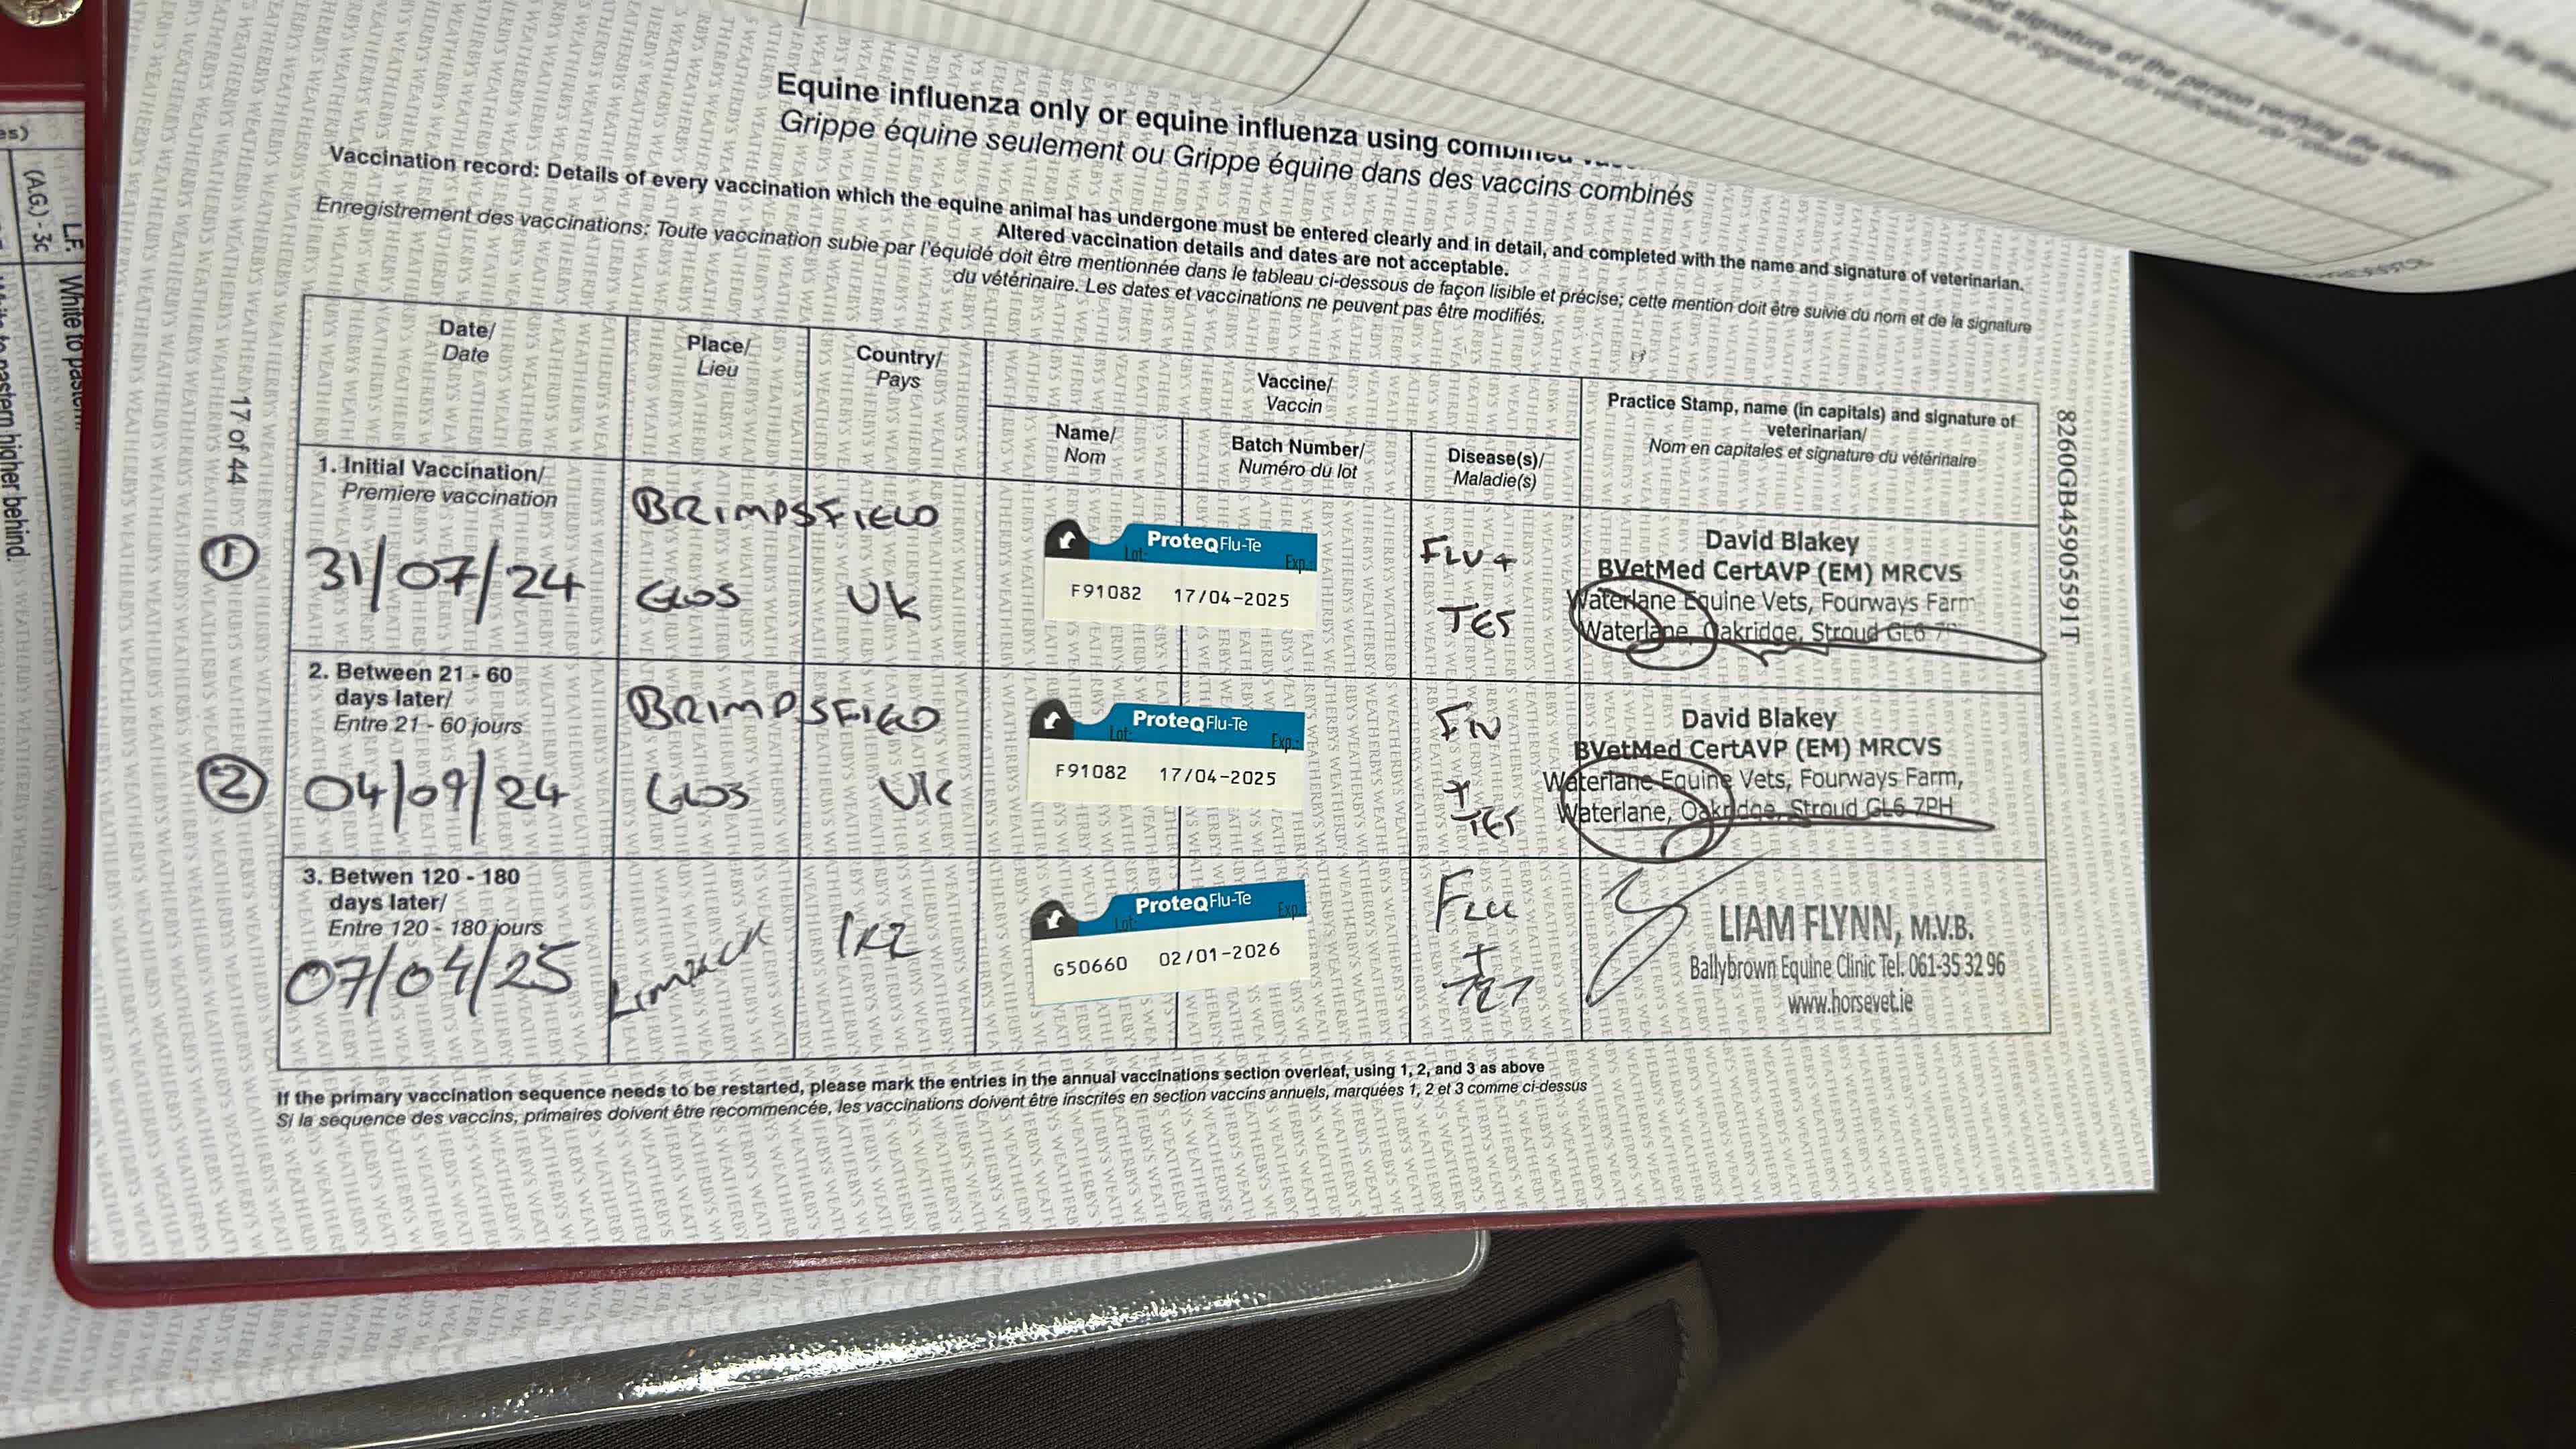 Equine influenza only or equine influenza using combined
Grippe équine seulement ou Grippe équine dans des vaccins combinés
Vaccination record: Details of every vaccination which the equine animal has undergone must be entered clearly and in detail, and completed with the name and signature of veterinarian.
Altered vaccination details and dates are not acceptable.
Enregistrement des vaccinations: Toute vaccination subie par l'équidé doit être mentionnée dans le tableau ci-dessous de façon lisible et précise; cette mention doit être suivie du nom et de la signature
du vétérinaire. Les dates et vaccinations ne peuvent pas être modifiés.
Date/
Date
Place/
Lieu
Country/
Pays
Vaccine/
Vaccin
Name/
Nom
Batch Number/
Numéro du lot
Disease(s)/
Maladie(s)
Practice Stamp, name (in capitals) and signature of
veterinarian/
Nom en capitales et signature du vétérinaire
1. Initial Vaccination/
Premiere vaccination
1
31/07/24
BRIMPSFIELD
GLOS
UK
ProteqFlu-Te
Lot: Exp.:
F91082 17/04-2025
FLU +
TET
David Blakey
BVetMed CertAVP (EM) MRCVS
Waterlane Equine Vets, Fourways Farm
Waterlane, Oakridge, Stroud GL6
2. Between 21 - 60
days later/
Entre 21 - 60 jours
2
04/09/24
BRIMPSFIELD
GLOS
UK
ProteqFlu-Te
Lot: Exp.:
F91082 17/04-2025
FLU
+
TET
David Blakey
BVetMed CertAVP (EM) MRCVS
Waterlane Equine Vets, Fourways Farm,
Waterlane, Oakridge, Stroud GL6 7PH
3. Betwen 120 - 180
days later/
Entre 120 - 180 jours
07/04/25
Limerick
IRE
ProteqFlu-Te
Lot: Exp.
G50660 02/01-2026
FLU
+
TET
LIAM FLYNN, M.V.B.
Ballybrown Equine Clinic Tel. 061-35 32 96
www.horsevet.ie
If the primary vaccination sequence needs to be restarted, please mark the entries in the annual vaccinations section overleaf, using 1, 2, and 3 as above
Si la sequence des vaccins, primaires doivent être recommencée, les vaccinations doivent être inscrites en section vaccins annuels, marquées 1, 2 et 3 comme ci-dessus
17 of 44
8260GB45905591T
(A.G.) - 3c
L.F. White to pastern
pastern higher behind.
WEATHERBYS